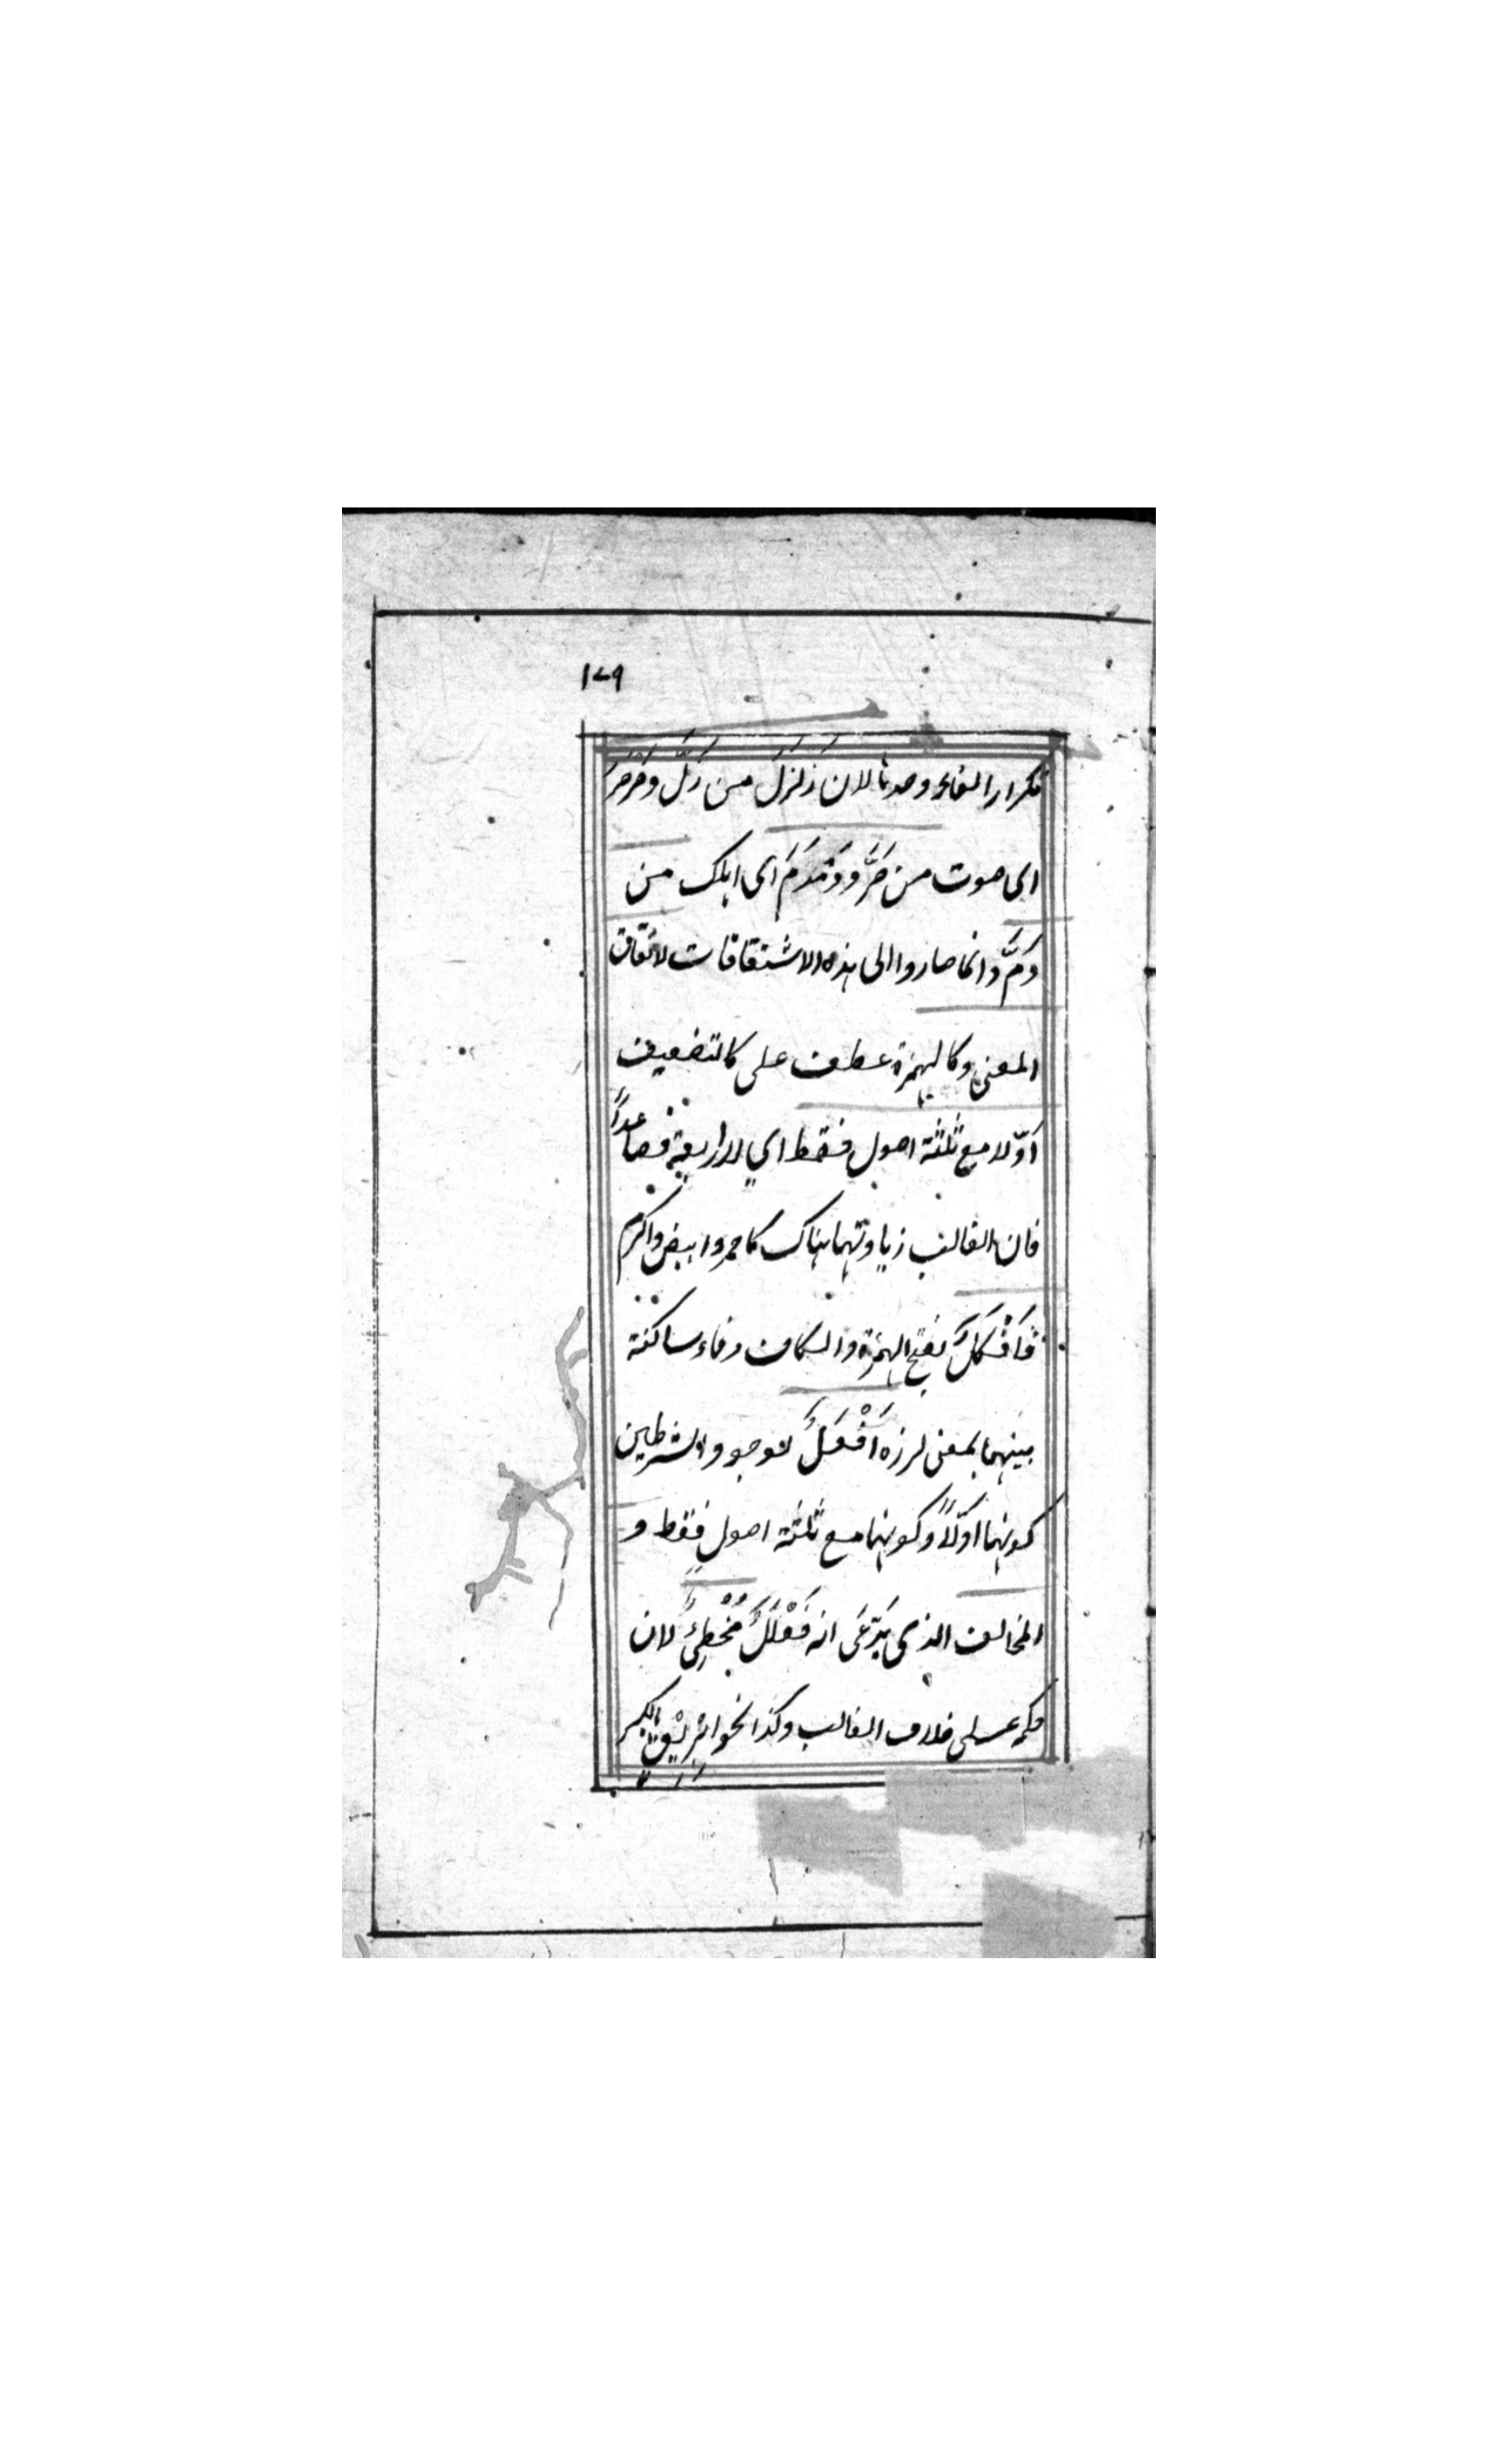 ١٧٩
فكرار الفاء وحدها لان زَلزَلَ من زَلَّ وصَرصَرَ
اى صوت من صَرَّ ودَمدَمَ اى اهلك من
دَمَّ وانما صاروا الى هذه الاشتقاقات لاتفاق
المعنى وكالهمزة عطف على كالتضعيف
اَوّلا مع ثلثة اصول فقط اي لا اربعة فصاعداً
فان الغالب زيادتهما هناك كاحمر وابيض واكرم
فَاَفْكَلٌ بفتح الهمزة والكاف وفاء ساكنة
بينهما بمعنى لرزه اَفْعَلُ لوجود الشرطين
كونها اوّلاً وكونها مع ثلثة اصولٍ فقط و
المخالف الذى يَدّعى انه فَعْلَلٌ مُخْطِئٌ لان
حكمه على خلاف الغالب وكذا نحو اِبْرِيْقٍ بالكسر